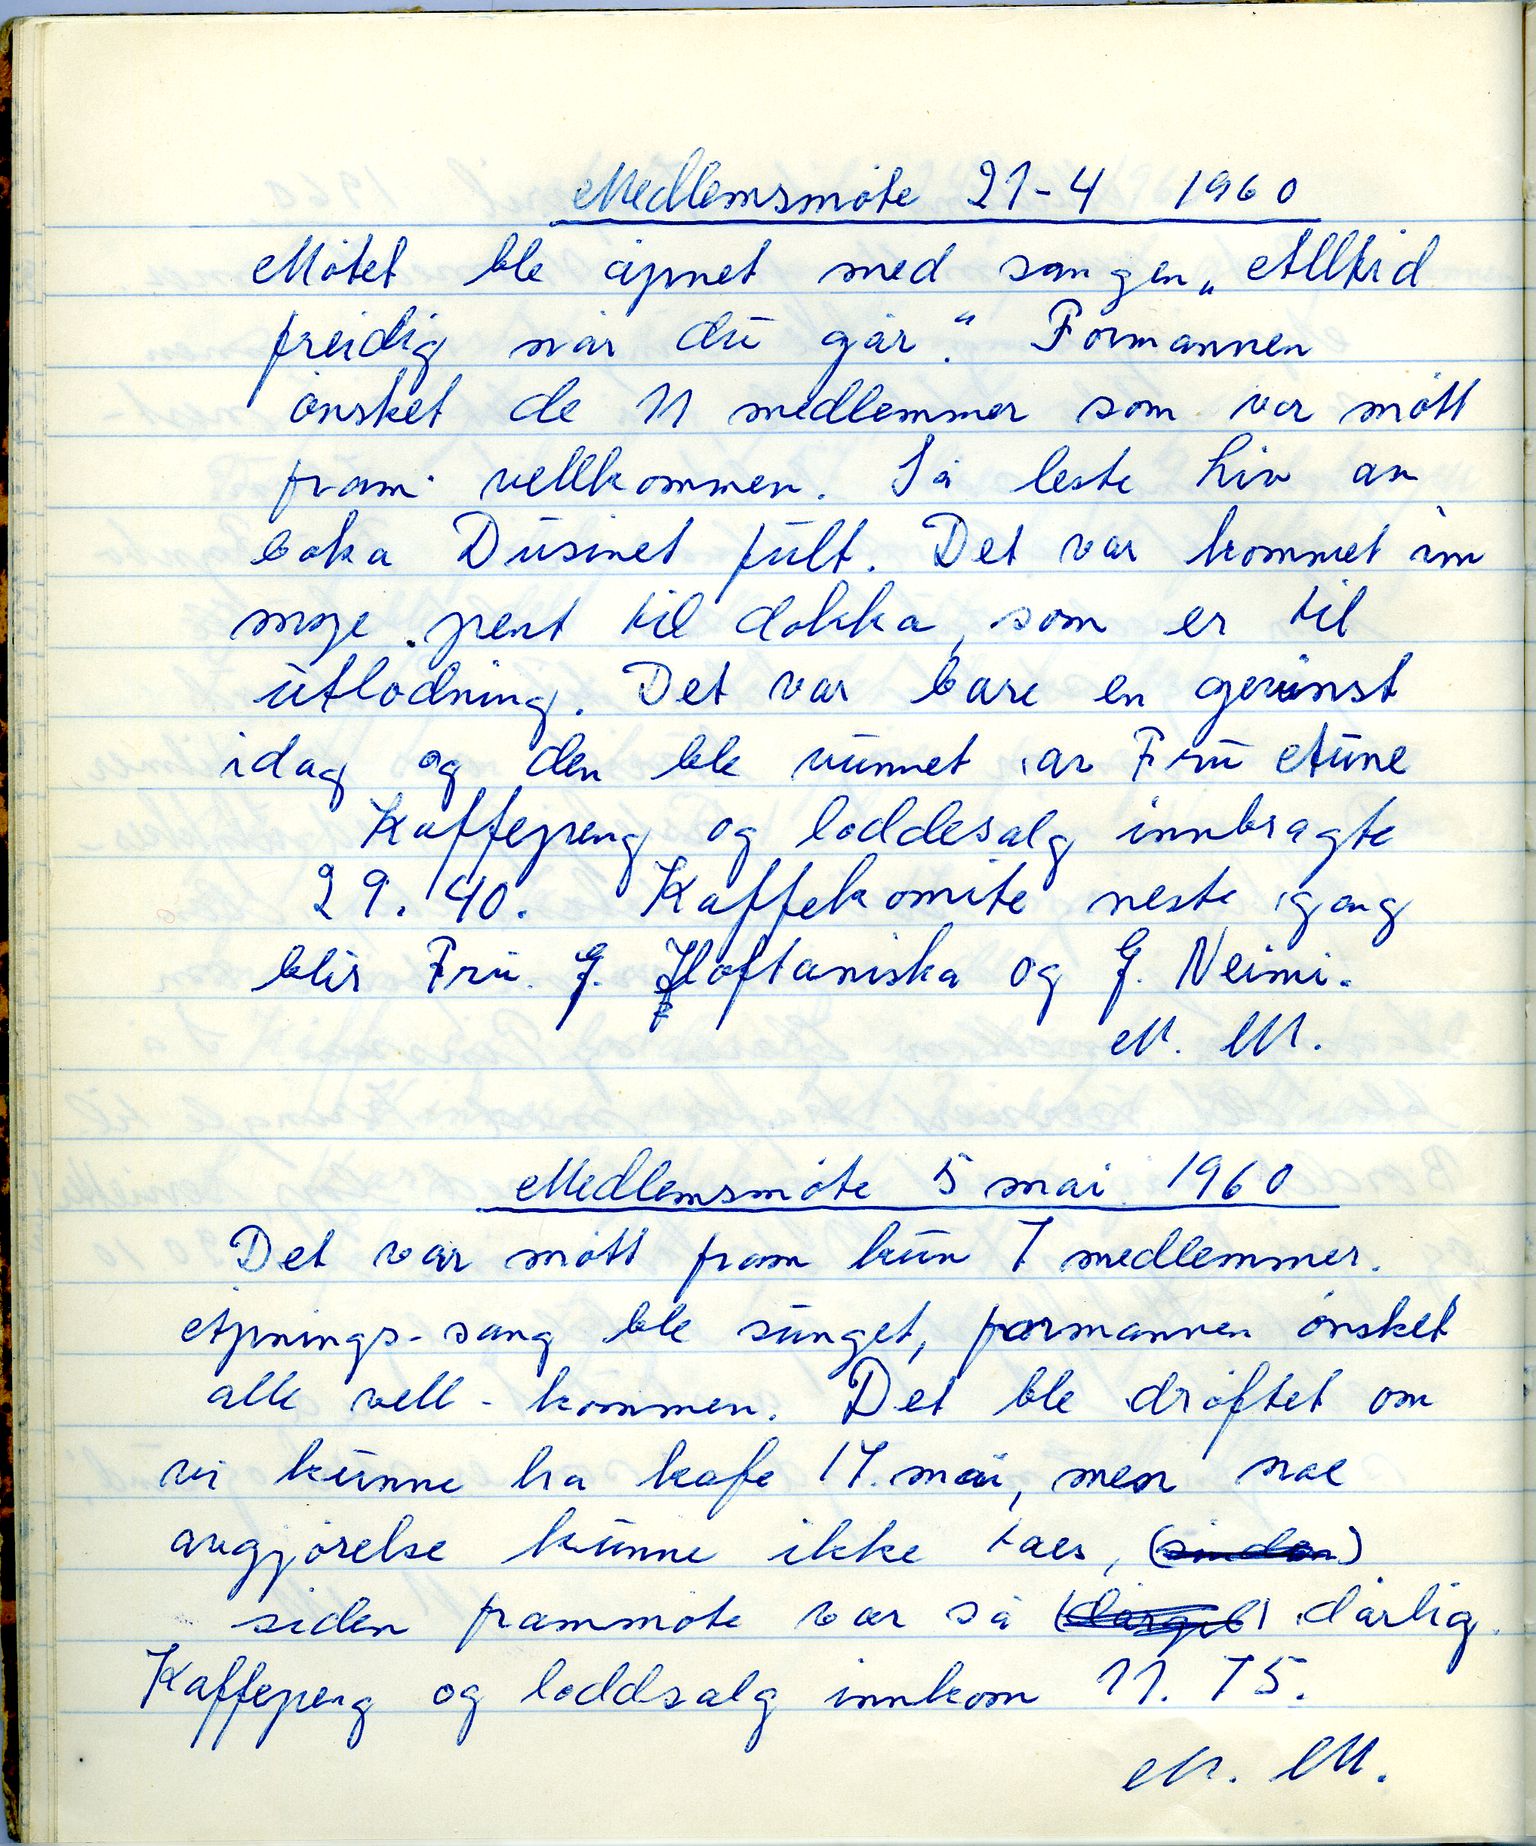 Medlemsmøte 21-4 1960
Møtet ble åpnet med sangen „Alltid
freidig når du går." Formannen
ønsket de 11 medlemmer som var møtt
fram vellkommen. Så leste Liv av
boka Dusinet fult. Det var kommet inn
mye pent til dokka, som er til
utlodning. Det var bare en gevinst
idag og den ble vunnet av Fru Aune
Kaffepeng og loddesalg innbragte
29.40. Kaffekomite neste gang
blir Fru. G. Hoftaniska og G. Neimi.
M. M.
Medlemsmøte 5 mai 1960
Det var møtt fram kun 7 medlemmer.
Åpnings-sang ble sunget, formannen ønsket
alle vell-kommen. Det ble drøftet om
vi kunne ha kafe 17. mai, men noe
avgjørelse kunne ikke taes,
siden frammøte var så dårlig.
Kaffepeng og loddsalg innkom 11.75.
M. M.